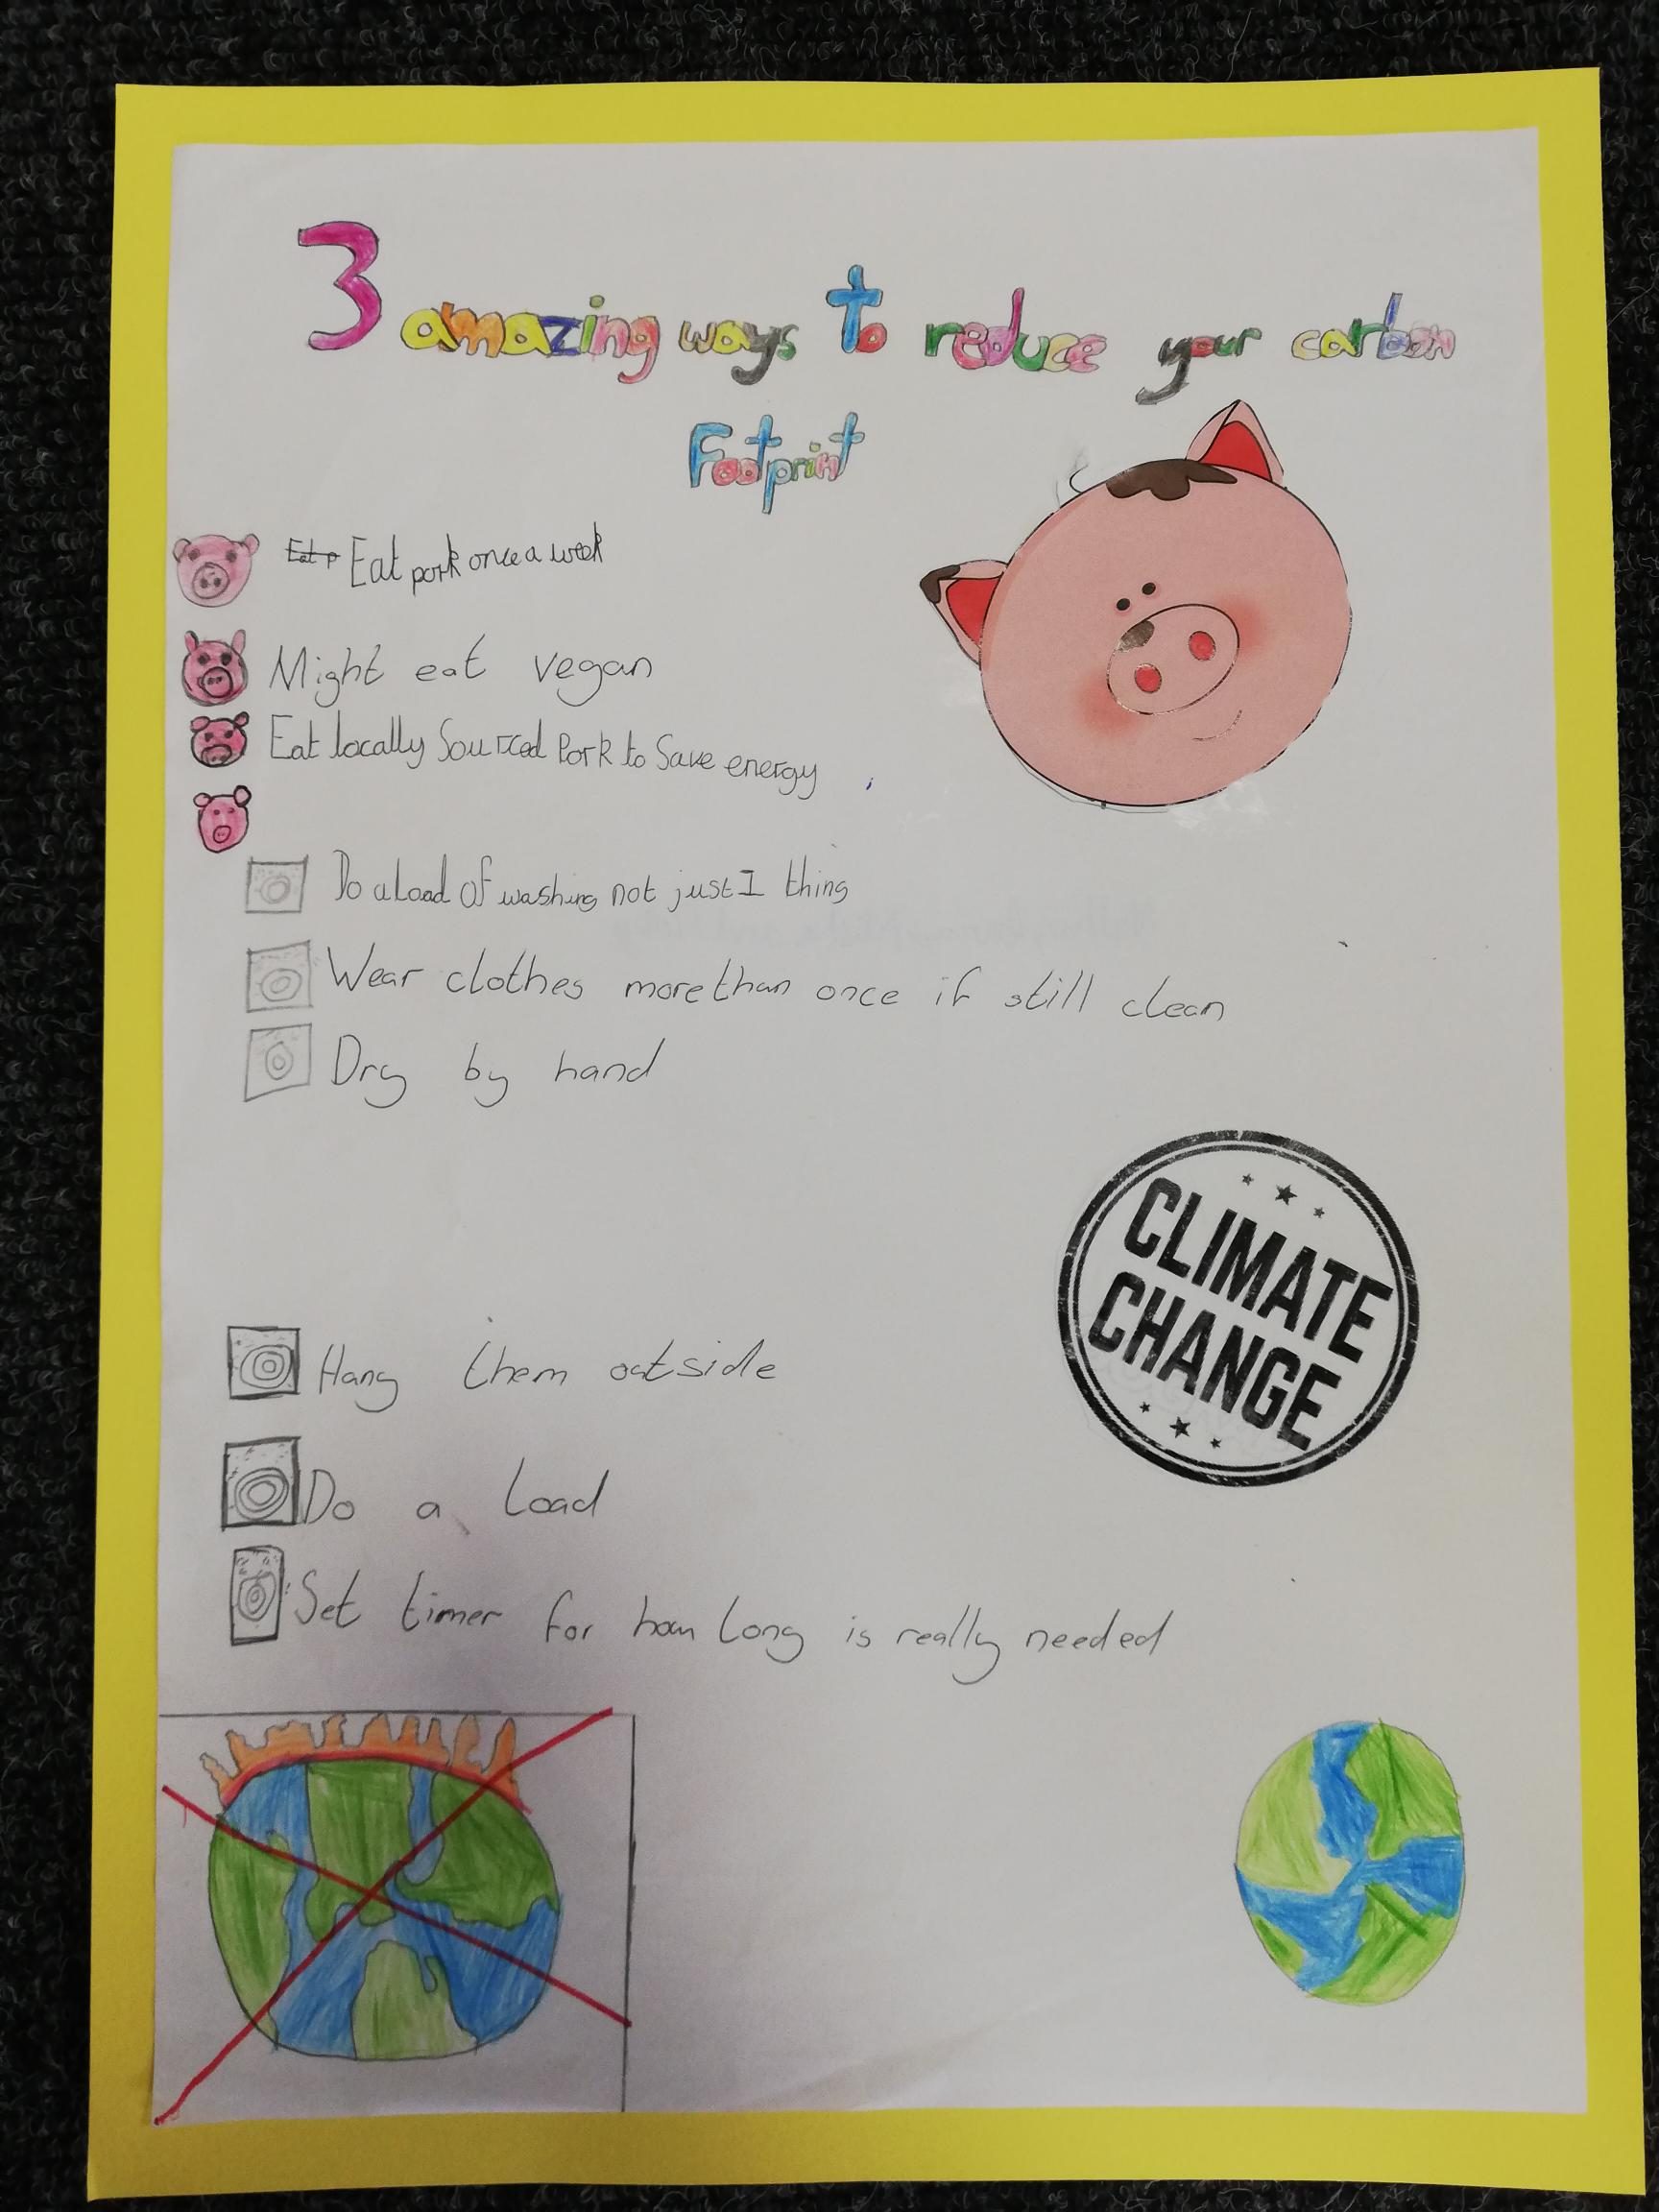 3 amazing ways to reduce your carbon
Footprint
Eat p Eat pork once a week
Might eat vegan
Eat locally Sourced Pork to Save energy
Do a Load of washing not just 1 thing
Wear clothes more than once if still clean
Dry by hand
CLIMATE
CHANGE
Hang them outside
Do a Load
Set timer for how long is really needed